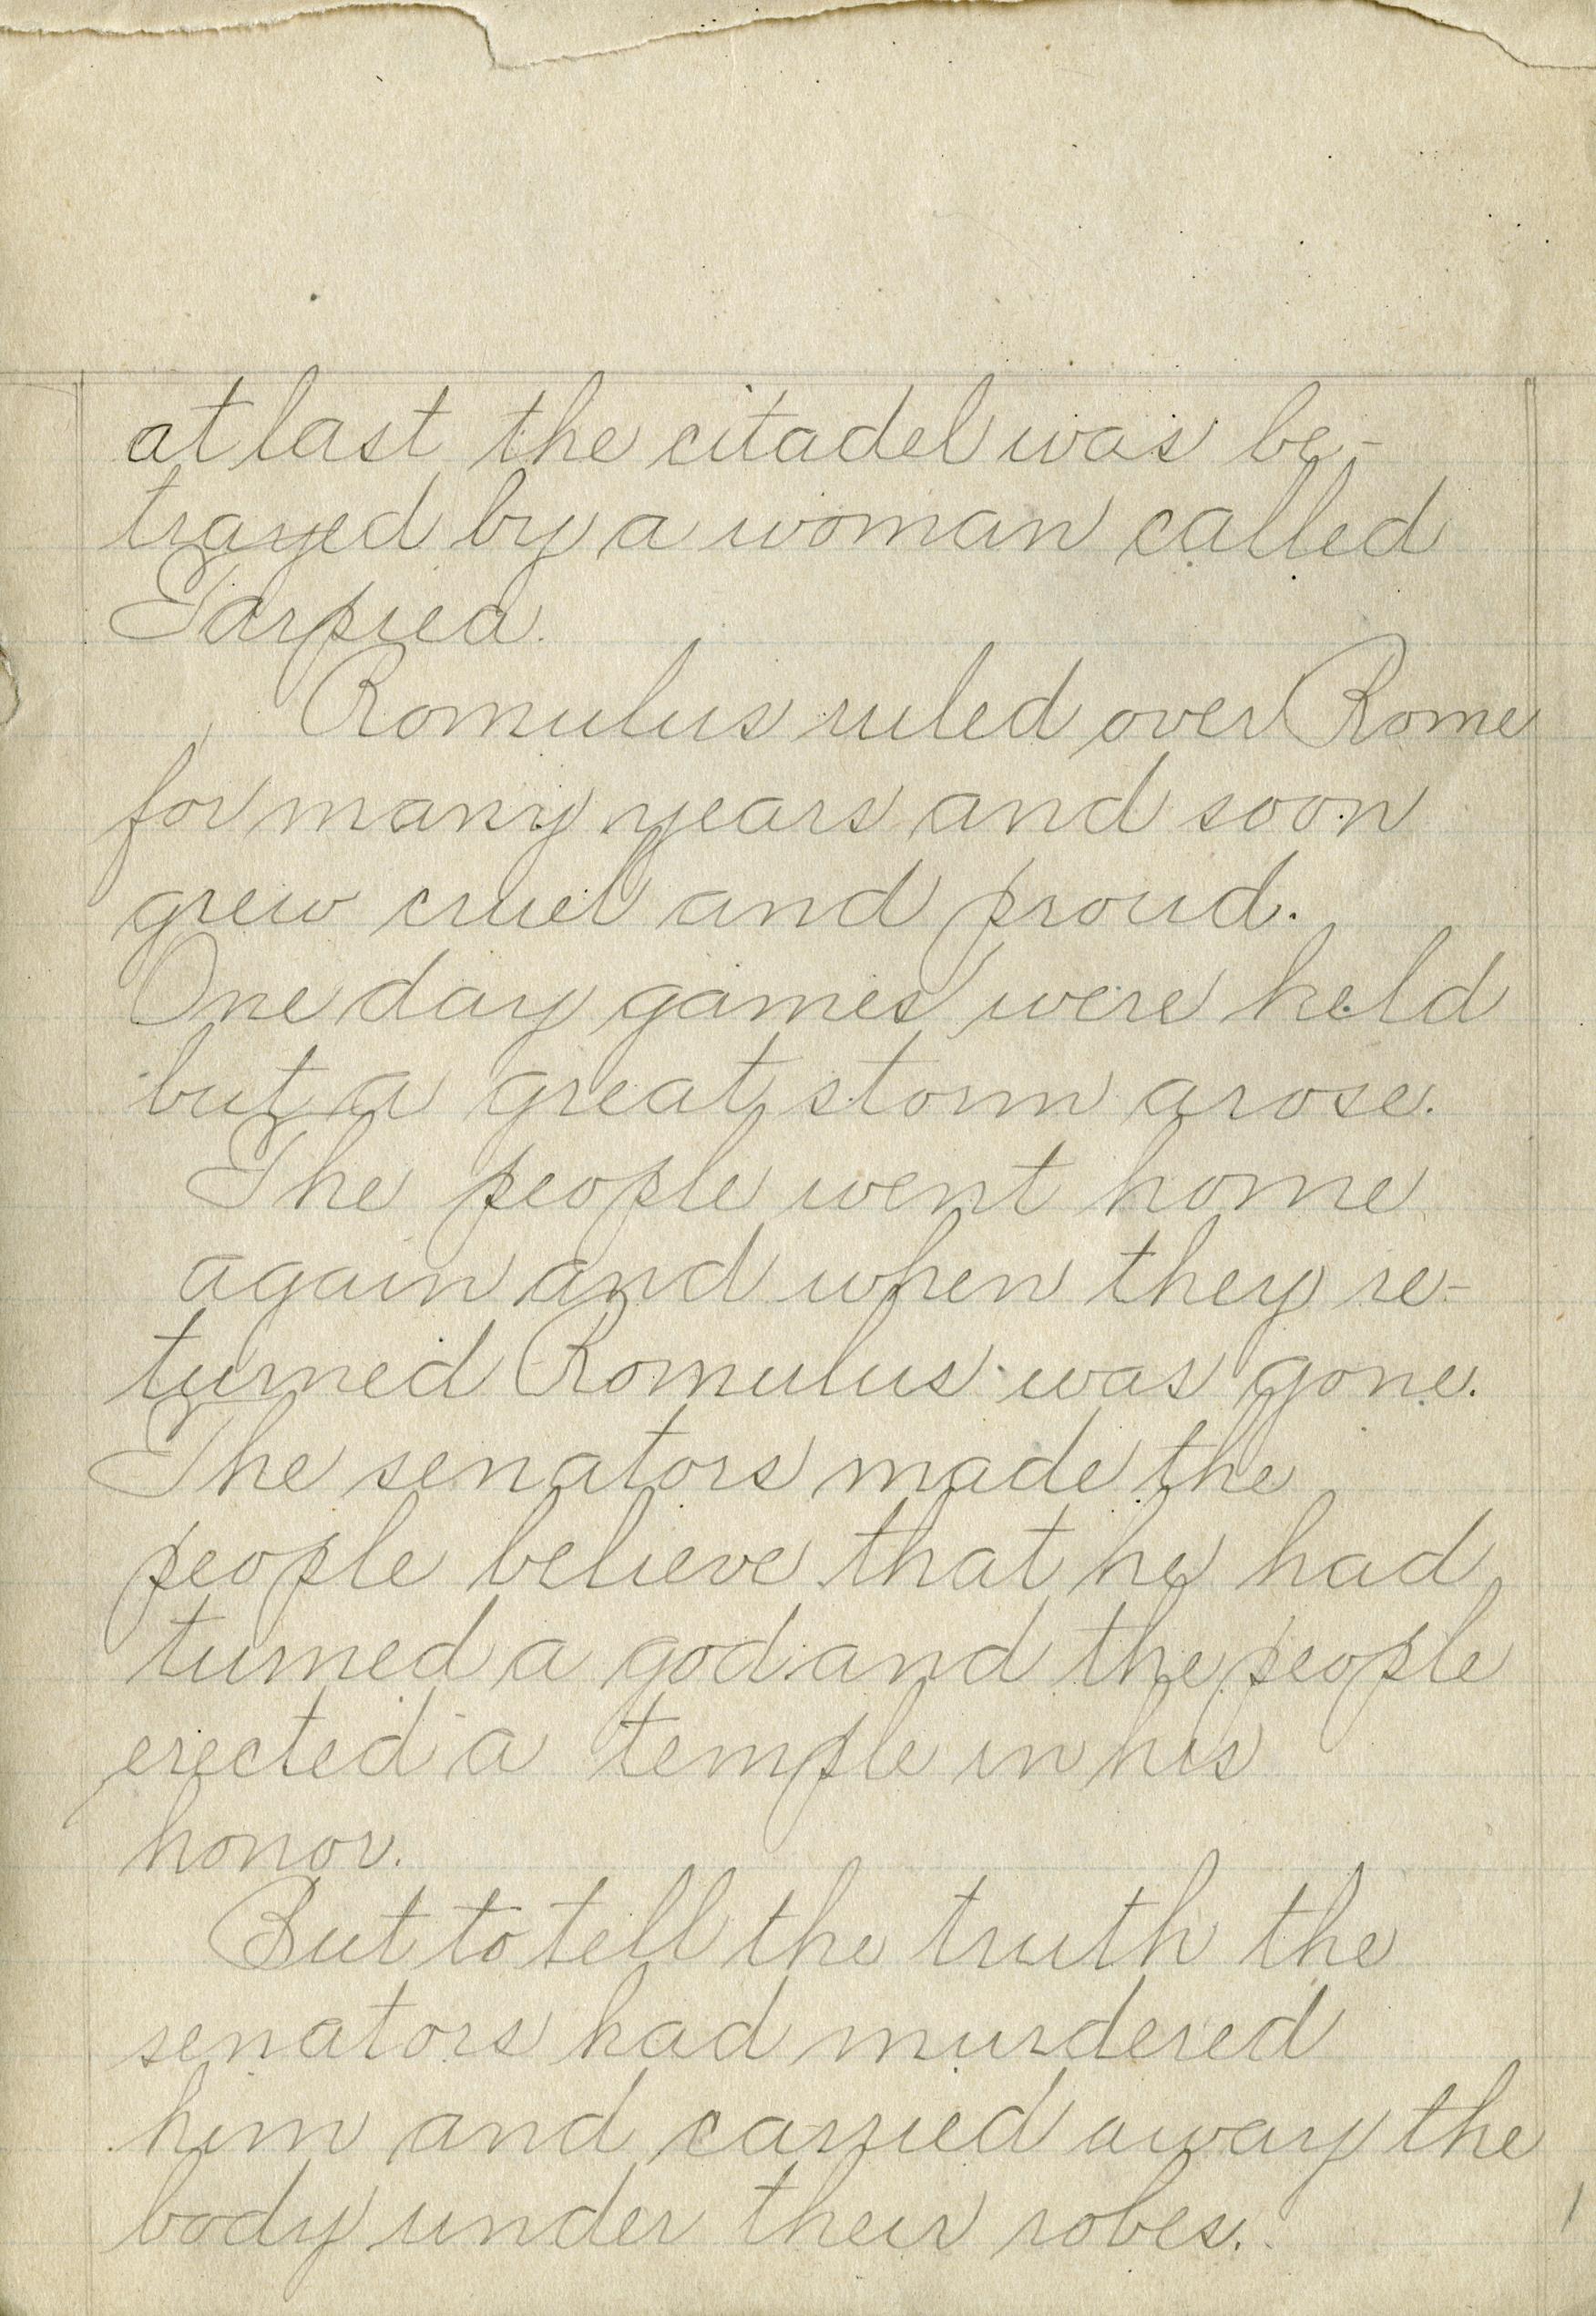 at last the citadel was be-
trayed by a woman called
Tarpiea.
Romulus ruled over Rome
for many years and soon
grew cruel and proud.
One day games were held
but a great storm arose.
The people went home
again and when they re-
turned Romulus was gone.
The senators made the
people believe that he had
turned a god and the people
erected a temple in his
honor.
But to tell the truth the
senators had murdered
him and carried away the
body under their robes.